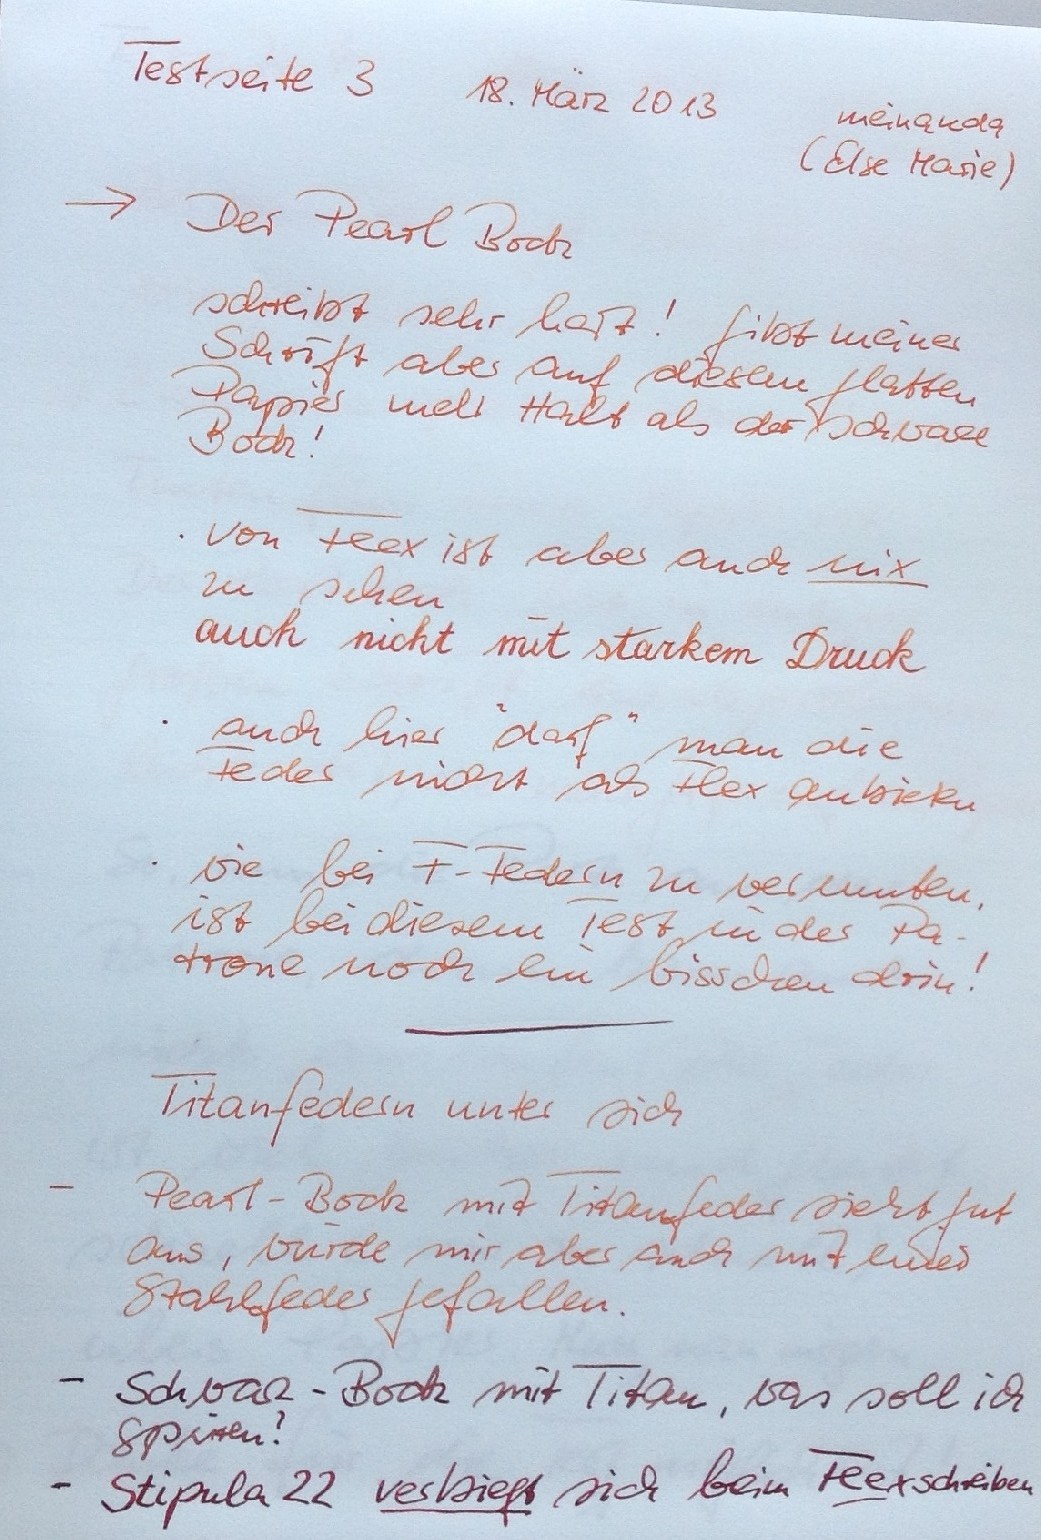 Testseite 3 18. März 2013
meinanda
(Else Marie)
→ Der Pearl Bock
schreibt sehr hart! gibt meiner
Schrift aber auf diesem glatten
Papier mehr Halt als der schwarze
Bock!
· von Fleex ist aber auch nix
zu sehen
auch nicht mit starkem Druck
· auch hier "darf" man die
Feder nicht als Flex anbieten
· wie bei F-Federn zu vermuten,
ist bei diesem Test in der Pa-
trone noch ein bisschen drin!
Titanfedern unter sich
- Pearl-Bock mit Titanfeder sieht gut
aus, würde mir aber auch mit einer
Stahlfeder gefallen.
- Schwarz-Bock mit Titan, was soll ich
spüren?
- Stipula 22 verbiegt sich beim Fleexschreiben